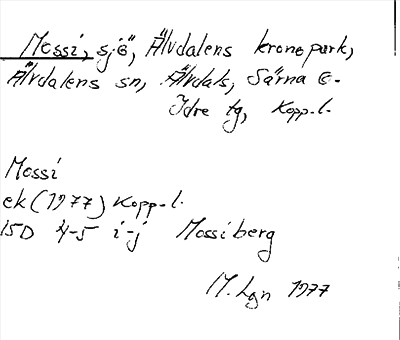 Mossi, sjö, Älvdalens kronopark,
Älvdalens sn, Älvdals, Särna o.
Idre tg, Kopp.l.
Mossi
ek (1977) Kopp.l.
15D 4-5 i-j Mossiberg
M. Lgn 1977